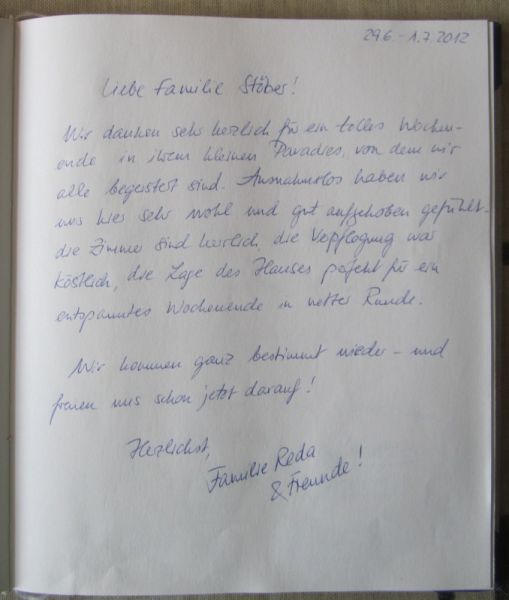 29.6. - 1.7.2012
Liebe Familie Stöber!
Wir danken sehr herzlich für ein tolles Wochen-
ende in ihrem kleinen Paradies, von dem wir
alle begeistert sind. Ausnahmslos haben wir
uns hier sehr wohl und gut aufgehoben gefühlt -
die Zimmer sind herrlich, die Verpflegung war
köstlich, die Lage des Hauses perfekt für ein
entspanntes Wochenende in netter Runde.
Wir kommen ganz bestimmt wieder - und
freuen uns schon jetzt darauf!
Herzlichst,
Familie Reda
& Freunde!